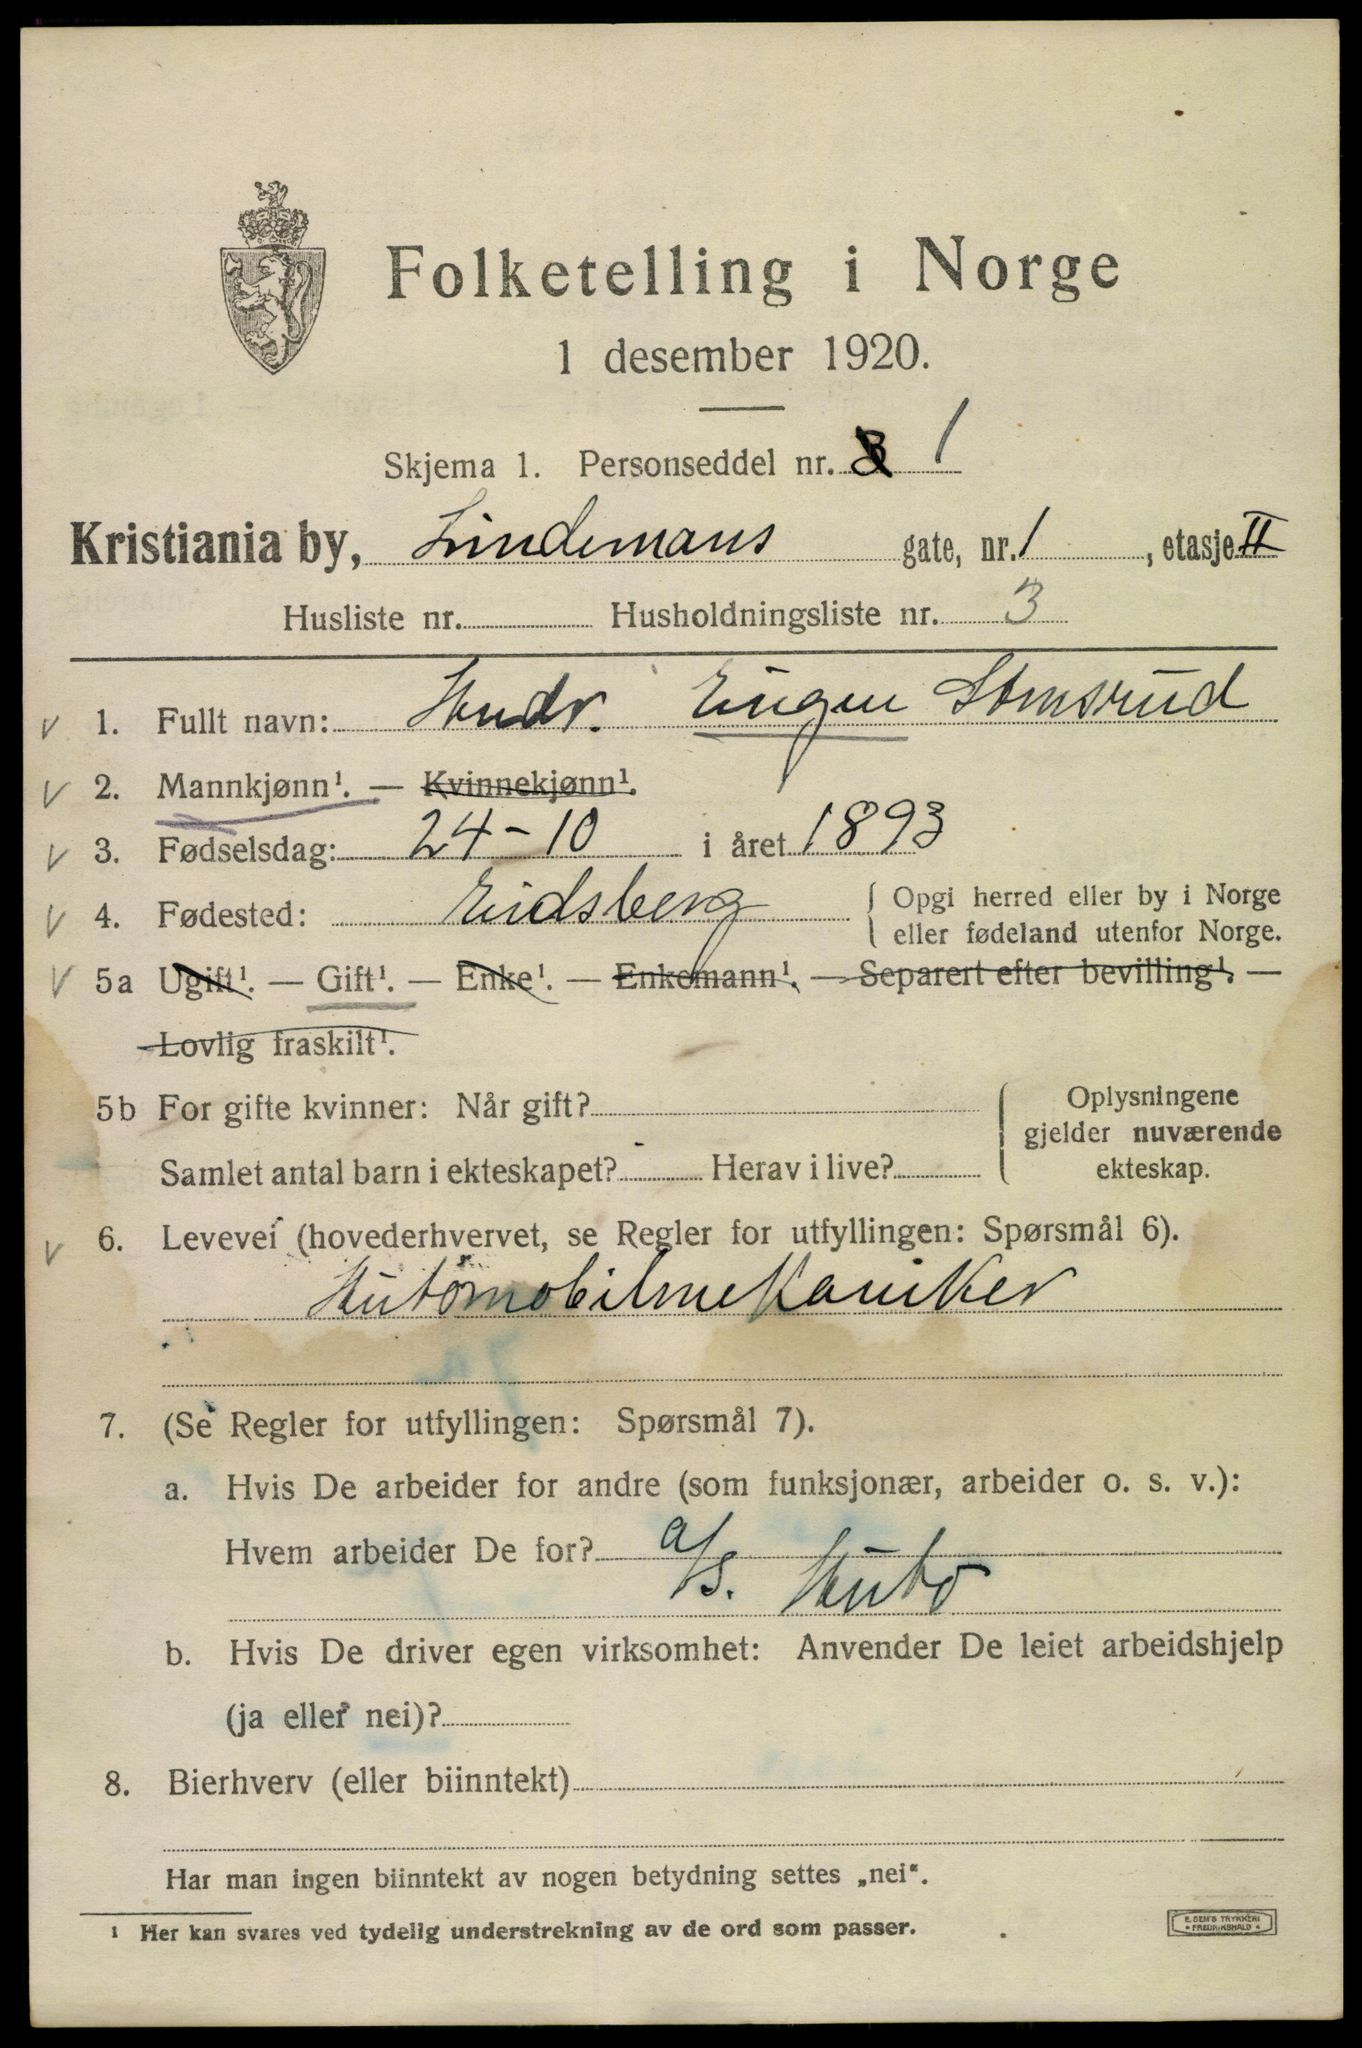 Folketelling i Norge
1 desember 1920.
Skjema 1. Personseddel nr. 1
Kristiania by, Lindemans gate, nr. 1, etasje II
Husliste nr. Husholdningsliste nr. 3
1. Fullt navn: Andr. Eugen Stomsrud
2. Mannkjønn¹. — Kvinnekjønn¹.
3. Fødselsdag: 24-10 i året 1893
4. Fødested: Eidsberg { Opgi herred eller by i Norge
eller fødeland utenfor Norge.
5a Ugift¹. — Gift¹. — Enke¹. — Enkemann¹. — Separert efter bevilling¹. —
Lovlig fraskilt¹.
5b For gifte kvinner: Når gift? Oplysningene
gjelder nuværende
Samlet antal barn i ekteskapet? Herav i live? ekteskap.
6. Levevei (hovederhvervet, se Regler for utfyllingen: Spørsmål 6).
Automobilmekaniker
7. (Se Regler for utfyllingen: Spørsmål 7).
a. Hvis De arbeider for andre (som funksjonær, arbeider o. s. v.):
Hvem arbeider De for? a/s. Auto
b. Hvis De driver egen virksomhet: Anvender De leiet arbeidshjelp
(ja eller nei)?
8. Bierhverv (eller biinntekt)
Har man ingen biinntekt av nogen betydning settes „nei“.
¹ Her kan svares ved tydelig understrekning av de ord som passer.
E. SEM'S TRYKKERI
* FREDRIKSHALD *